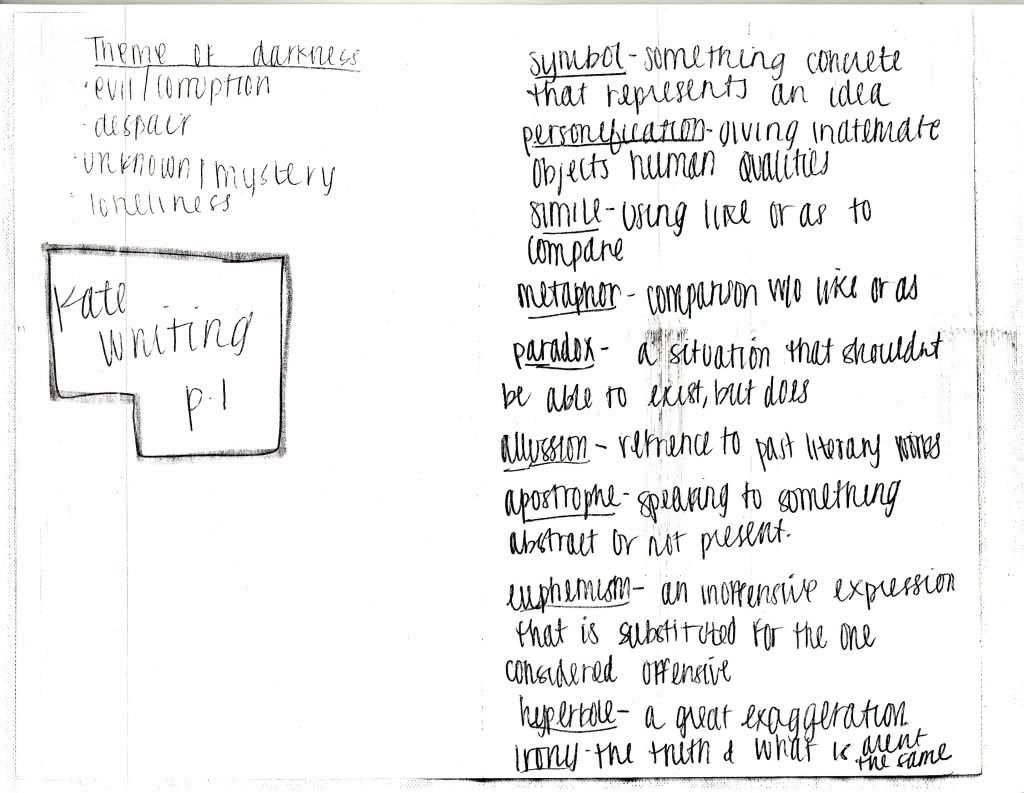 Theme of darkness
·evil/corruption
·despair
·unknown/mystery
·loneliness
Kate
writing
p.1
symbol-something concrete
that represents an idea
personefication-giving inatemate
objects human qualities
simile-using like or as to
compare
metaphor- comparison w/o like or as
paradox- a situation that shouldnt
be able to exist, but does
allussion- refrence to past literary works
apostrophe-speaking to something
abstract or not present.
euphemism- an inoffensive expression
that is substituted for the one
considered offensive
hyperbole- a great exaggeration
irony-the truth & what is arent
the same